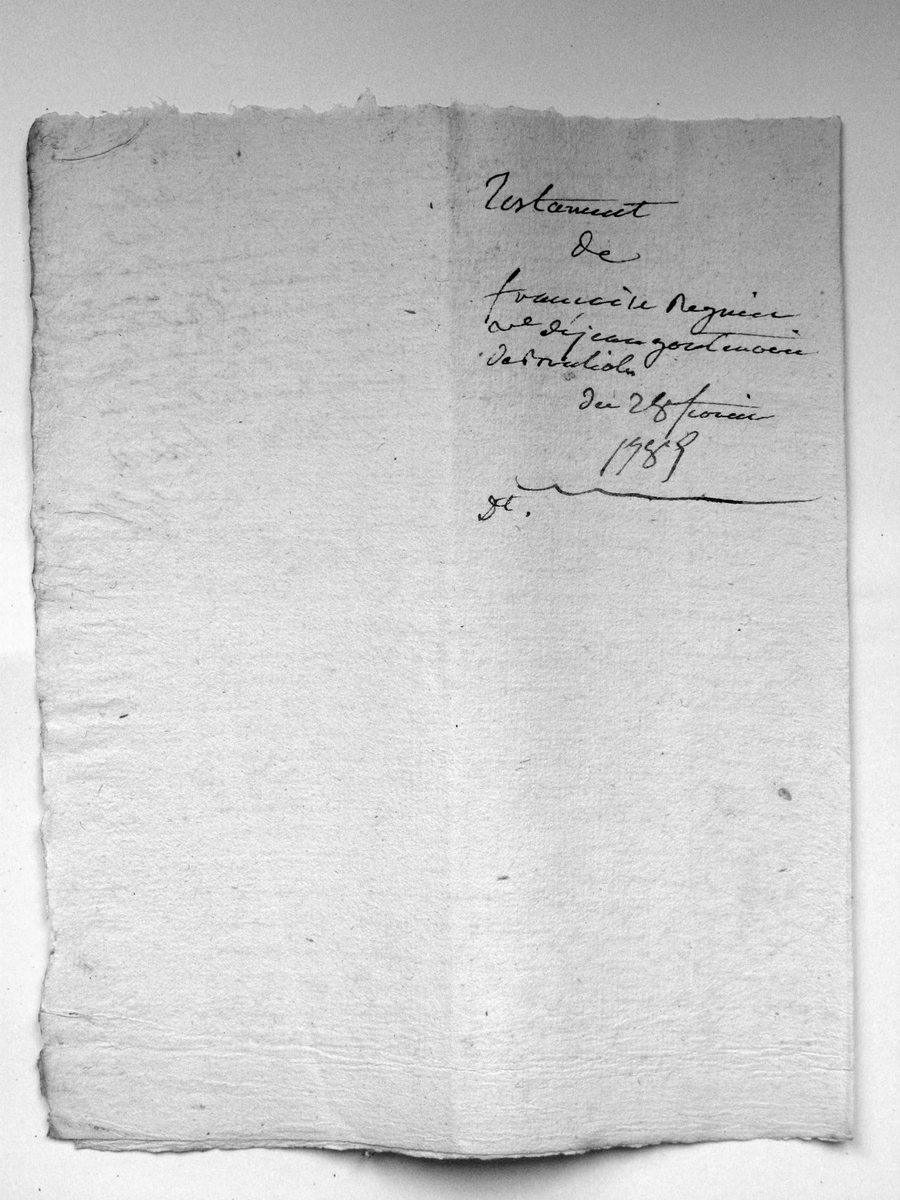 Testament
de
francoise Regnier
ve de jean goutenoire
de
du 28 fevrier
1789
Dt.